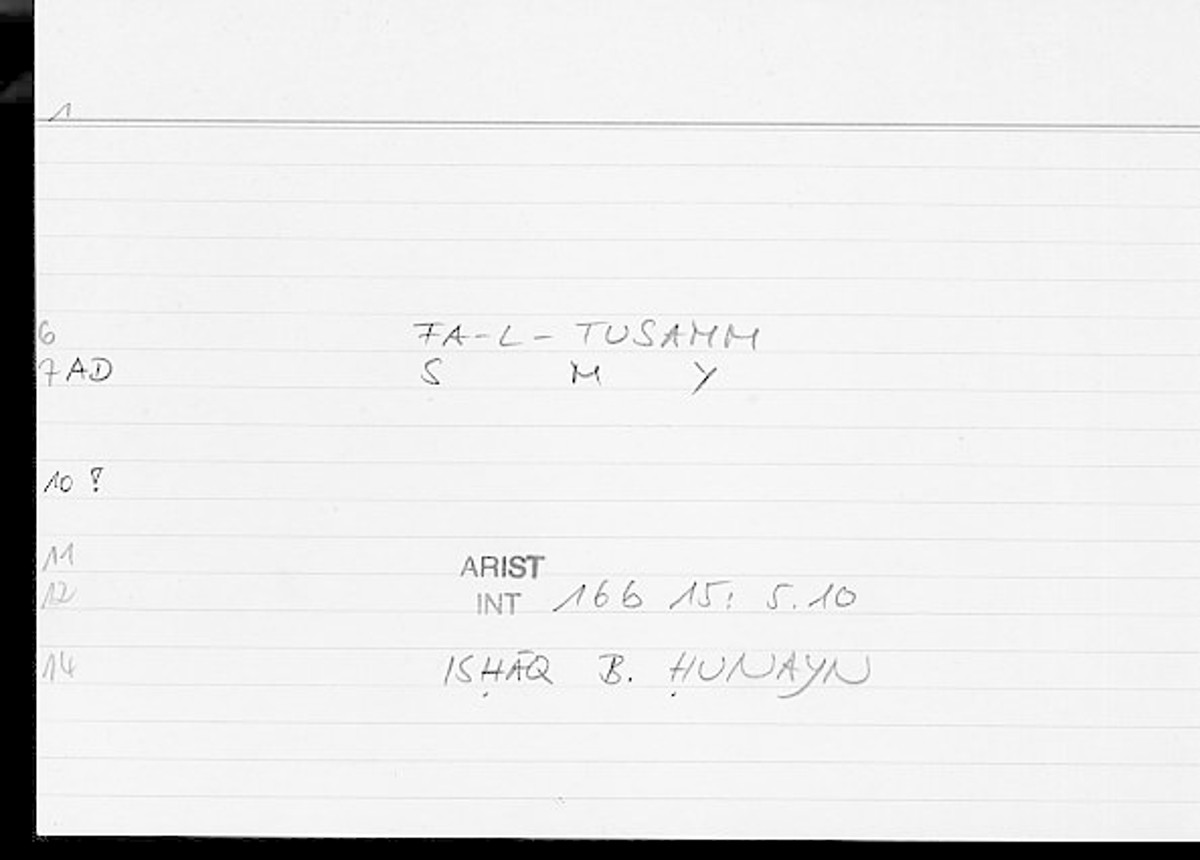 1
6 FA-L-TUSAMM
7 AD S M Y
10 ?
11 ARIST
12 INT 16b 15: 5.10
14 ISḤĀQ B. ḤUNAYN